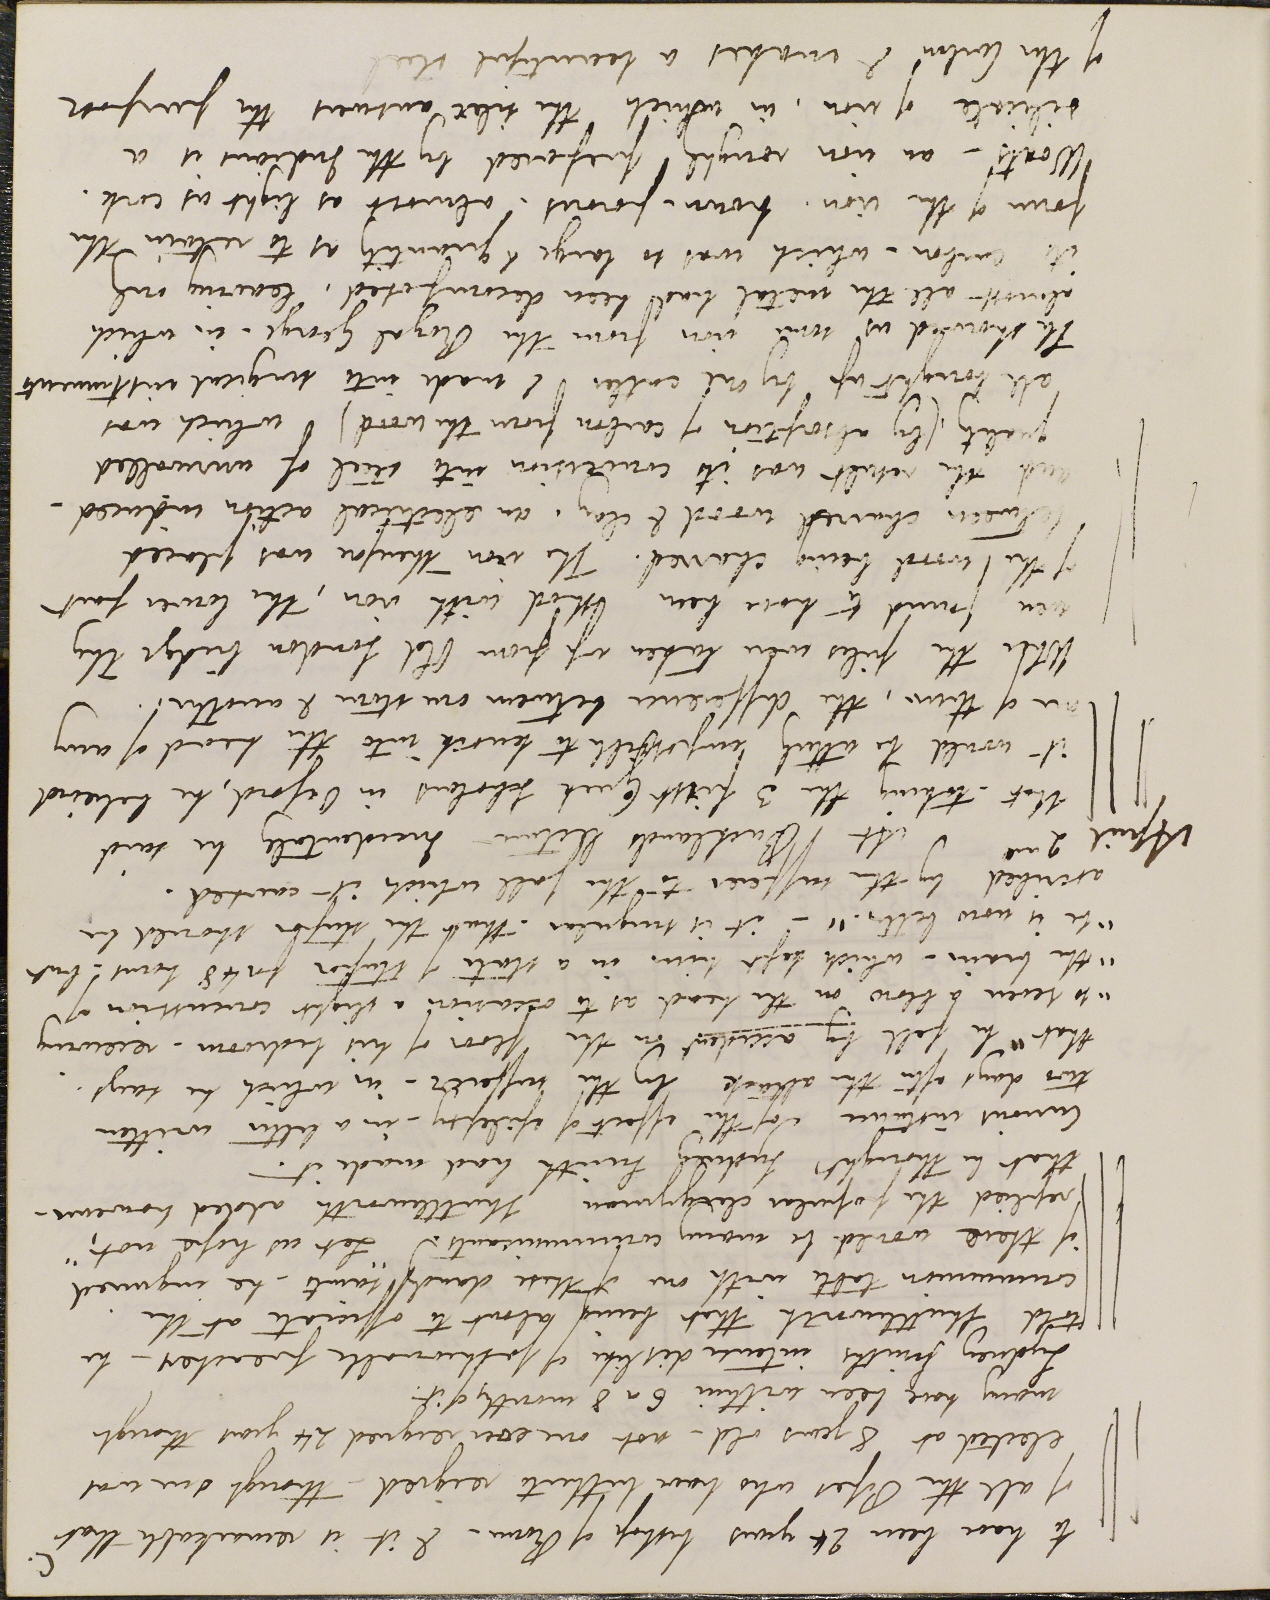 c.
to have been 24 years bishop of Rome - & it is remarkable that
of all the Popes who have hitherto reigned - though one was
elected at 8 years old - not one ever reigned 24 years though
many have been within 6 or 8 months of it.
Sydney Smiths intense dislike of fashionable preachers - he
told Shuttleworth that being about to officiate at the
communion table with one of these dandy saints - he inquired
if there would be many communicants. "Let us hope not,"
replied the popular clergyman Shuttleworth added however -
that he thought Sydney Smith had made it.
Curious instance of the effect of epilepsy - in a letter written
two days after the attack by the sufferer - in which he says.
that "he fell by accident on the floor of his bedroom - receiving
"so severe a blow on the head as to occasion a slight concussion of
"the brain - which kept him in a state of stupor for 48 hours - but
"he is now better." - it is singular - that the stupor should be
ascribed by the sufferer to the fall which it caused.
April 2nd At Bucklands lecture Incidentally he said
that - taking the 3 first Greek Scholars in Oxford, he believed
it would be utterly impossible to knock into the head of any
one of them, the difference between one stone & another.
When the piles were taken up from Old London bridge they
were found to have been shod with iron, the lower part
of the wood being charred. The iron therefore was placed
between charred wood & clay. an electrical action induced -
and the result was its conversion into steel of unrivalled
quality, (by absorption of carbon from the wood) which was
all bought up by one cutler & made into surgical instruments
He showed us some iron from the Royal George - in which
almost all the metal had been decomposed, leaving only
its carbon - which was so large a quantity as to retain the
form of the iron. brown - porous - almost as light as cork.
Woats - an iron roughly prepared by the Indians is a
silicate of iron, in which the silex answers the purpose
of the Carbon & makes a beautiful steel